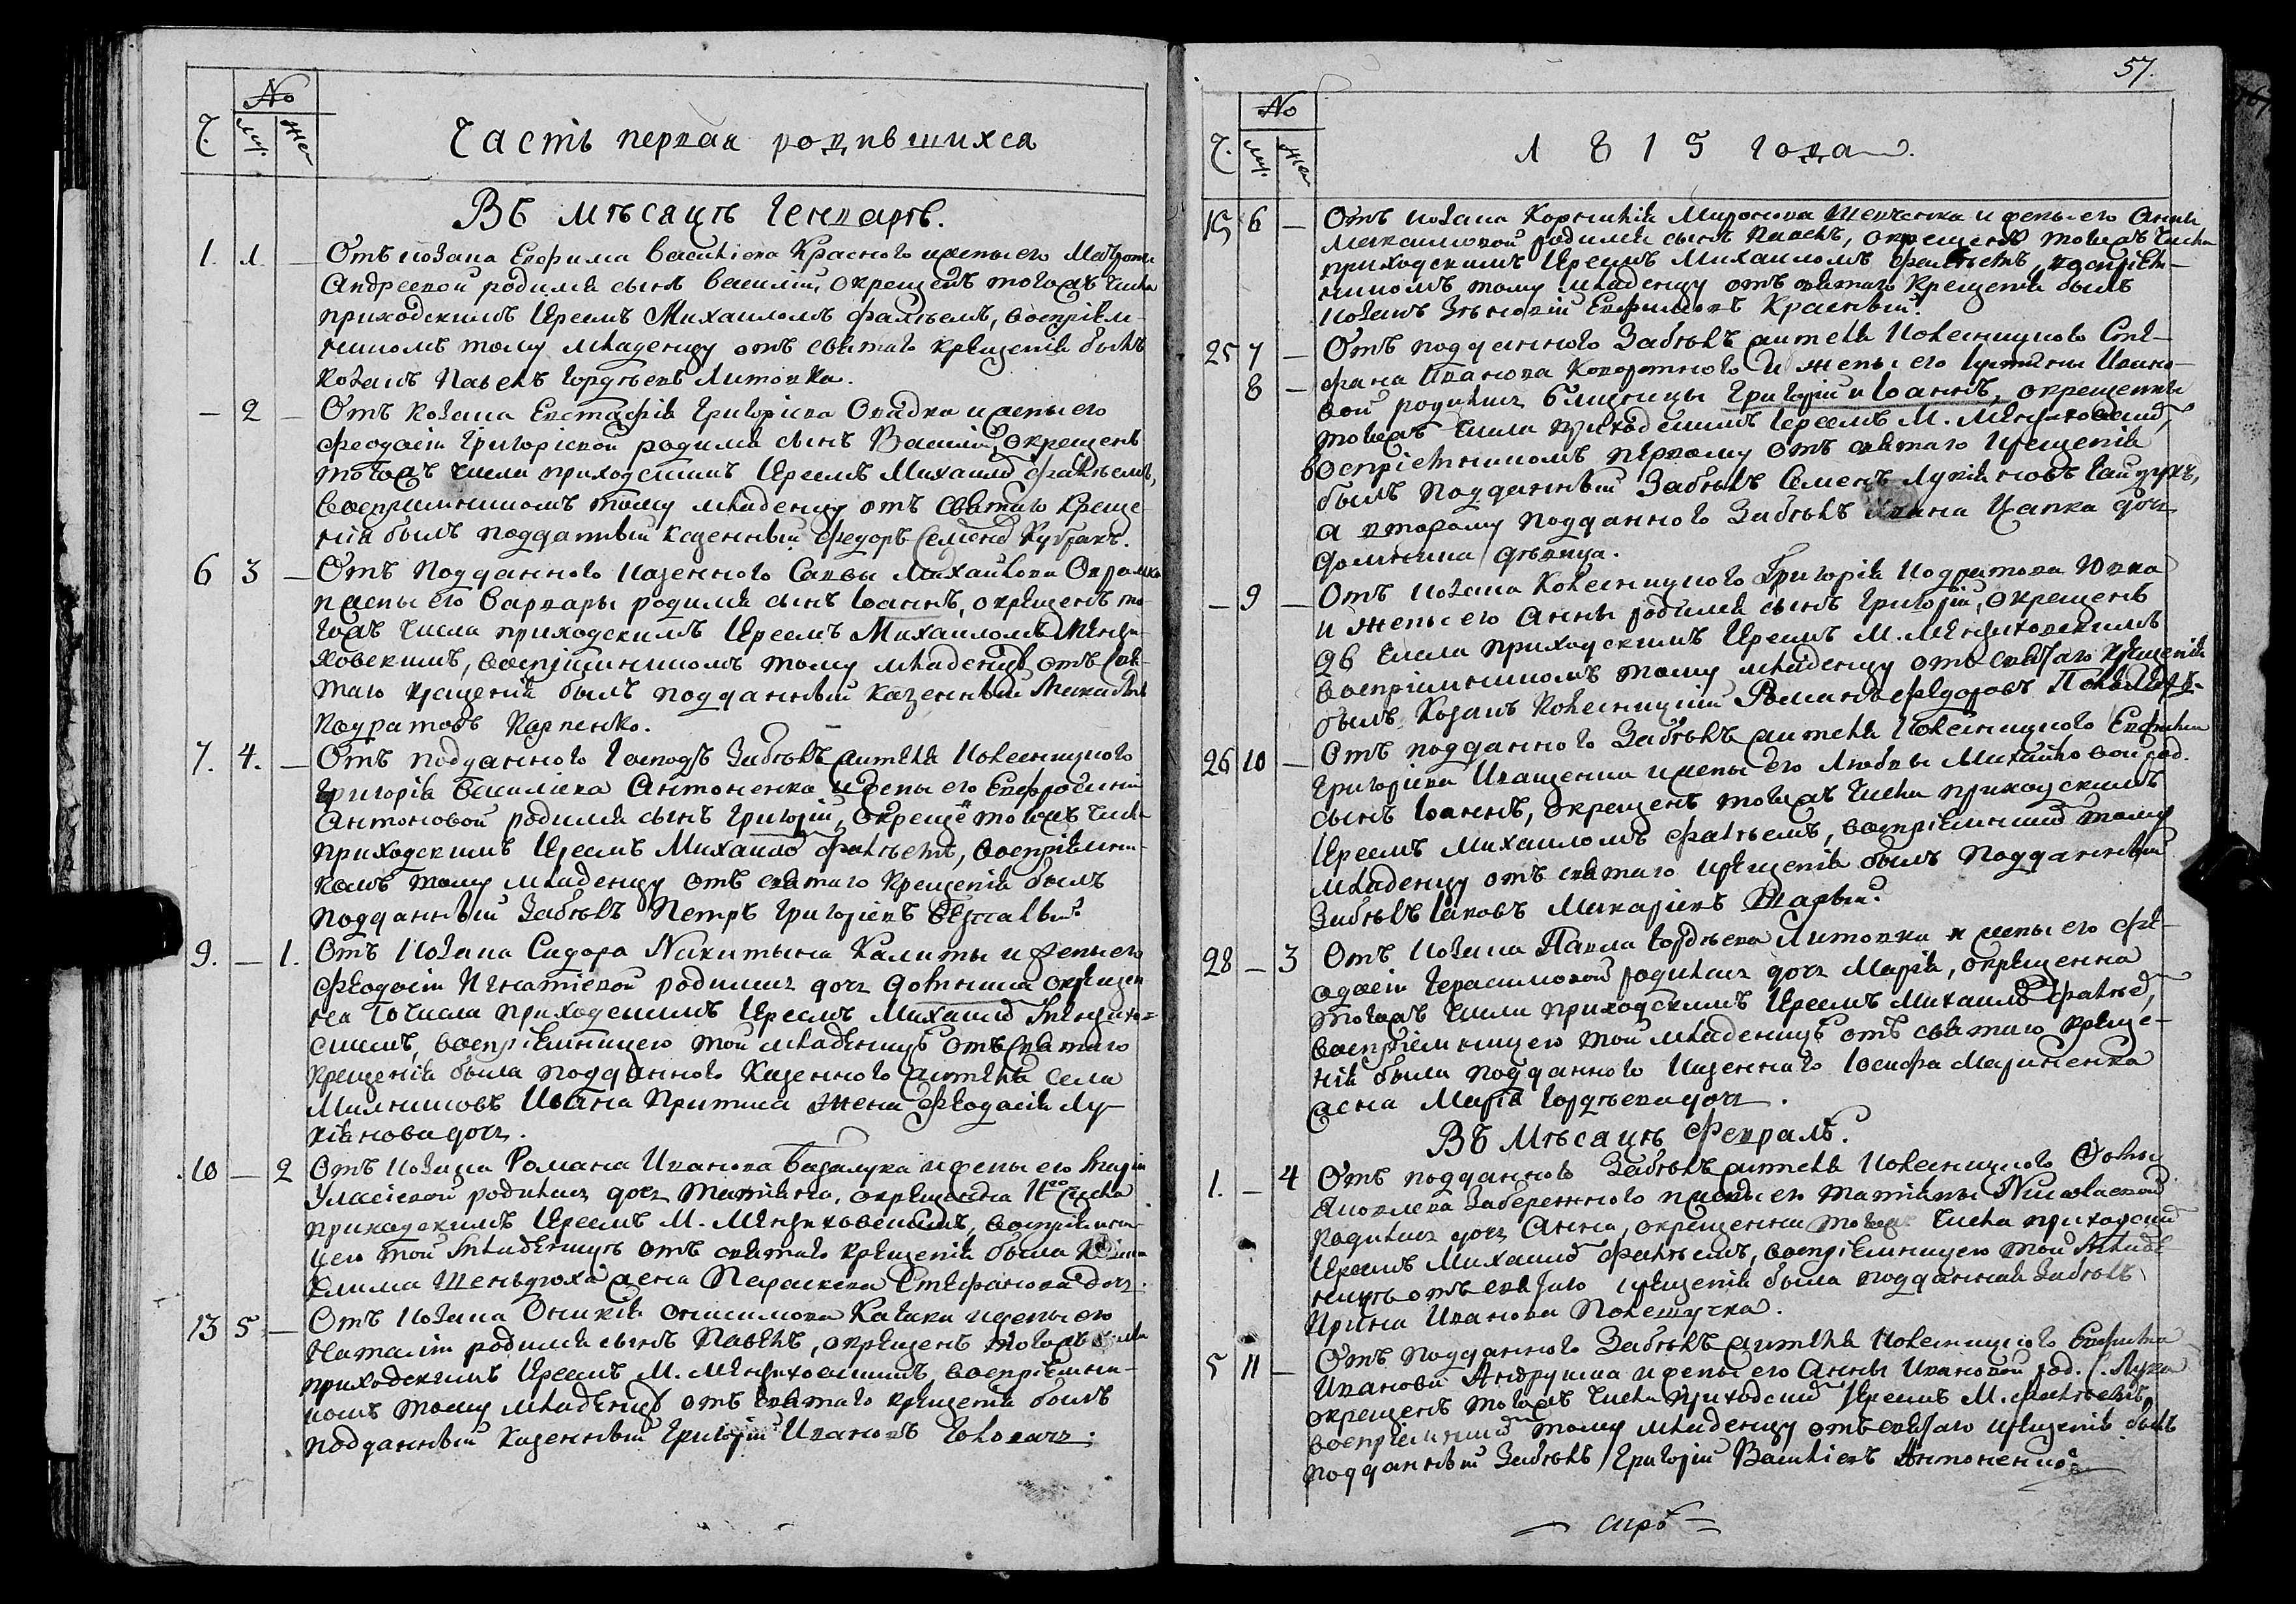 №
Ч. му. же
Часть первая родившихся
Въ мѣсяцѣ Генварѣ.
1. 1. — Отъ козака Евфима Василіева Красного и жены его
Андреевой родился сынъ Василій, окрещенъ тогожъ числа
приходскимъ Іереемъ Михаиломъ Фалѣемъ, воспріем-
никомъ тому младенцу отъ святаго крещенія былъ
козакъ Павелъ Гордѣевъ Литовка.
— 2 — Отъ козака Евстафія Григоріева Опадка и жены его
Феодосіи Григоріевой родился сынъ Василій, окрещенъ
тогожъ числа приходскимъ Іереемъ Михаило Фалѣемъ,
воспріемникомъ тому младенцу отъ святаго креще-
нія былъ подданный казенный Федоръ Семено Кубракъ.
6 3 — Отъ подданного казенного Саввы Михайлова
и жены его Варвары родился сынъ Іоаннъ, окрещенъ то-
гожъ числа приходскимъ Іереемъ Михаиломъ Менжи-
ховскимъ, воспріемникомъ тому младенцу отъ свя-
таго крещенія былъ подданный казенный
Кодратовъ Карпенко.
7. 4. — Отъ подданного Господъ Забѣлъ жителя Колесницкого
Григорія Василіева Антоненка и жены его Евфросиніи
Антоновой родился сынъ Григорій, окреще тогожъ числа
приходскимъ Іереемъ Михаило Фалѣемъ, воспріемни-
комъ тому младенцу отъ святаго крещенія былъ
подданный Забѣлъ Петръ Григоріевъ
9. — 1. Отъ козака Сидора Никитына Калиты и жены его
Феодосіи Игнатіевой родилась дочь Домникія окрещен
на 10 числа приходскимъ Іереемъ Михаило Менжихо-
скимъ, воспріемницею той младеницѣ отъ святаго
крещенія была подданного казенного жителя села
Ивана Притики жена Феодосія Лу-
кіянова дочь.
10 — 2 Отъ козака Романа Иванова Базалука и жены его Маріи
Уласіевой родилась дочь Татіяна, окрещенна 11го числа
приходскимъ Іереемъ М. Менжиховскимъ, воспріемни-
цею той младеницѣ отъ святаго крещенія была
Клима жена Параскева Стефанова дочь.
13 5 — Отъ козака Оникія Онисимова и жены его
Наталіи родился сынъ Павелъ, окрещенъ тогожъ числа
приходскимъ Іереемъ М. Менжиховскимъ, воспріемни-
комъ тому младенцу отъ святаго крещенія былъ
подданный казенный Григорій Ивановъ Головачъ.
57.
№
Ч. му. же
1815 года.
15 6 — Отъ козака Корникія Миронова Шевченка и жены его Анны
родился сынъ Павелъ, окрещенъ тогожъ числа
приходскимъ Іереемъ Михаиломъ Фалѣемъ, воспріем-
никомъ тому младенцу отъ святаго крещенія былъ
козакъ Зѣновій Евфимовъ Красный.
25 7 — Отъ подданного Забѣлъ жителя Колесницкого Сте-
8 — фана Иванова Коворотного и жены его Іустины Ивано-
вой родились близницы Григорій и Іоаннъ, окрещенны
тогожъ числа приходскимъ Іереемъ М. Менжиховским,
воспріемникомъ первому отъ святаго крещенія
былъ подданный Забѣлъ Семенъ Лукіяновъ Гайдукъ,
а второму подданного Забѣлъ Ивана Цапка дочь
Домникія дѣвица.
— 9 — Отъ козака Колесницкого Григорія Кодратова Ювка
и жены его Анны родился сынъ Григорій, окрещенъ
26 числа приходскимъ Іереемъ М. Менжиховскимъ
воспріемникомъ тому младенцу отъ святаго крещенія
былъ козакъ Колесницкій Романъ Федоровъ
26 10 — Отъ подданного Забѣлъ жителя Колесницкого Евфима
Григоріева Иващенка и жены его Любвы Михайловой род.
сынъ Іоаннъ, окрещенъ тогожъ числа приходскимъ
Іереемъ Михаиломъ Фалѣемъ, воспріемнико тому
младенцу отъ святаго крещенія былъ подданный
Забѣлъ Іаковъ Макаріевъ
28 — 3 Отъ козака Павла Гордѣева Литовки и жены его Фе-
одосіи Герасимовой родилась дочь Марія, окрещенна
тогожъ числа приходскимъ Іереемъ Михаило Фалѣе,
воспріемницею той младеницѣ отъ святаго креще-
нія была подданного казенного Іосифа Мариненка
жена Марія Гордѣева дочь.
Въ Мѣсяцѣ Февралѣ.
1. — 4 Отъ подданного Забѣлъ жителя Колесницкого Фомы
Яковлева Забережного и жены его Татіяны Николаевой
родилась дочь Анна, окрещенна тогожъ числа приходски
Іереемъ Михаило Фалѣемъ, воспріемницею той младе-
ницѣ отъ святаго крещенія была подданная Забѣлъ
Ирина Иванова
5 11 — Отъ подданного Забѣлъ жителя Колесницкого Евфима
Иванова Андрушка и жены его Анны Ивановой род. с. Лука
окрещенъ тогожъ числа приходски Іереемъ М. Фалѣемъ,
воспріемнико тому младенцу отъ святаго крещенія былъ
подданный Забѣлъ Григорій Василіевъ Антоненко.